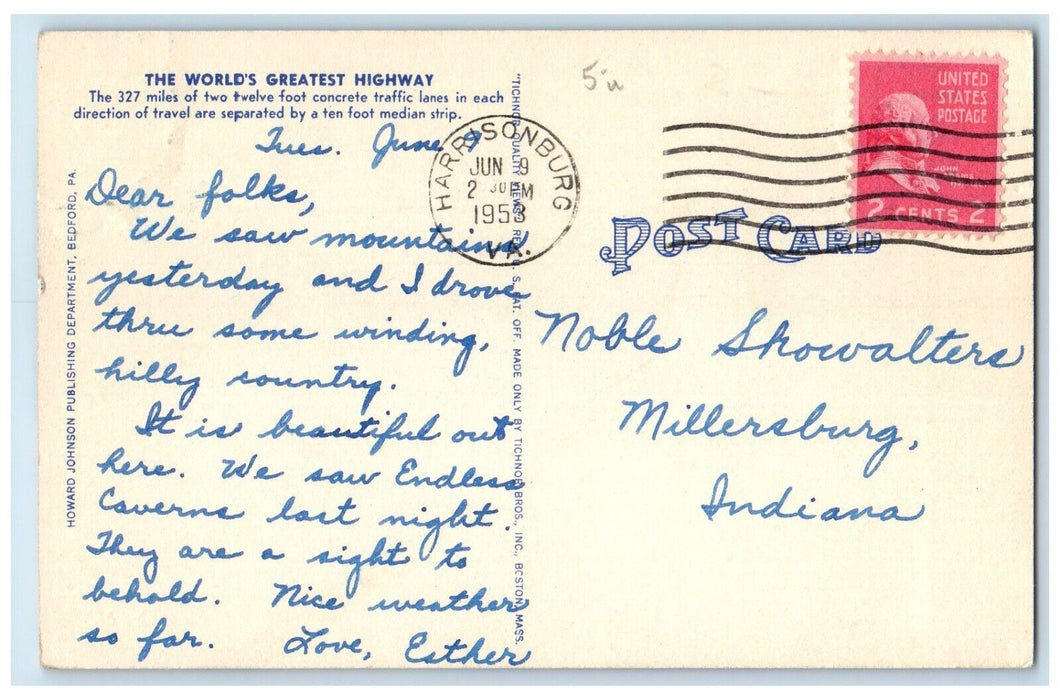 THE WORLD'S GREATEST HIGHWAY
The 327 miles of two twelve foot concrete traffic lanes in each
direction of travel are separated by a ten foot median strip.
Tues. June 9
Dear folks,
We saw mountains
yesterday and I drove
thru some winding,
hilly country.
It is beautiful out
here. We saw Endless
Caverns last night.
They are a sight to
behold. Nice weather
so far. Love, Esther
HOWARD JOHNSON PUBLISHING DEPARTMENT, BEDFORD, PA.
"TICHNOR QUALITY VIEWS," REG. U. S. PAT. OFF. MADE ONLY BY TICHNOR BROS., INC., BOSTON, MASS.
HARRISONBURG
JUN 9
2 30 PM
1953
VA.
UNITED
STATES
POSTAGE
JOHN
ADAMS
2 CENTS 2
POST CARD
Noble Showalters
Millersburg,
Indiana